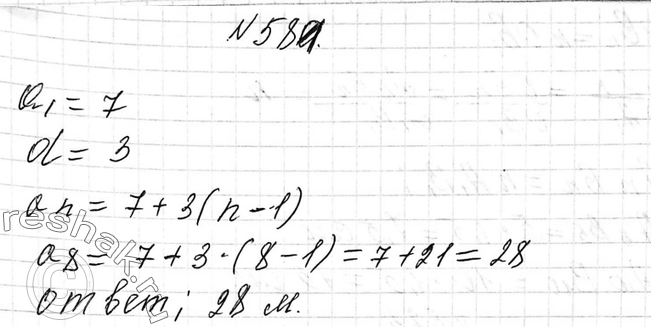 №581.
a₁ = 7
d = 3
an = 7 + 3(n - 1)
a8 = 7 + 3 · (8 - 1) = 7 + 21 = 28
ответ; 28 м.
reshak.ru